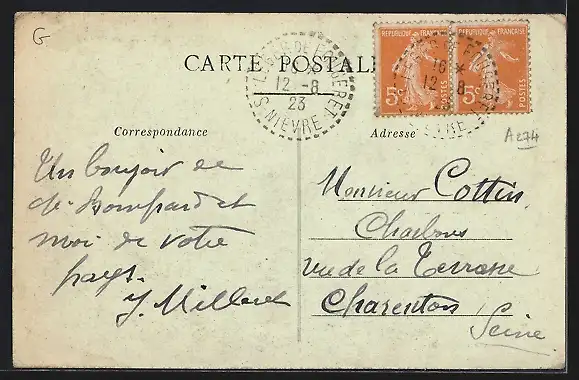 G
CARTE POSTALE
12 - 8
23
NIEVRE
REPUBLIQUE FRANÇAISE
5c
POSTES
REPUBLIQUE FRANÇAISE
16 *
12 - 8
5c
POSTES
A274
Correspondance
Adresse
Un bonjour de
et
moi de votre
pays.
Y. Millard
Monsieur Cottin
Charbons
rue de la Terrasse
Charenton
Seine